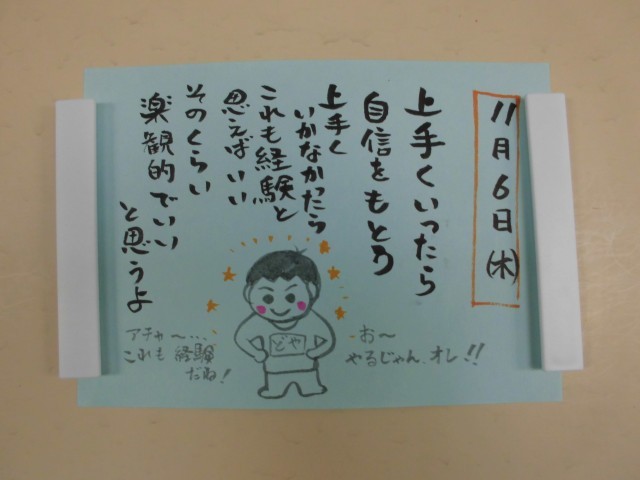 11月6日(木)
上手くいったら
自信をもとう
上手く
いかなかったら
これも経験と
思えばいい
そのくらい
楽観的でいい
と思うよ
お〜
やるじゃん、オレ!!
どや
アチャ〜…
これも経験
だね!